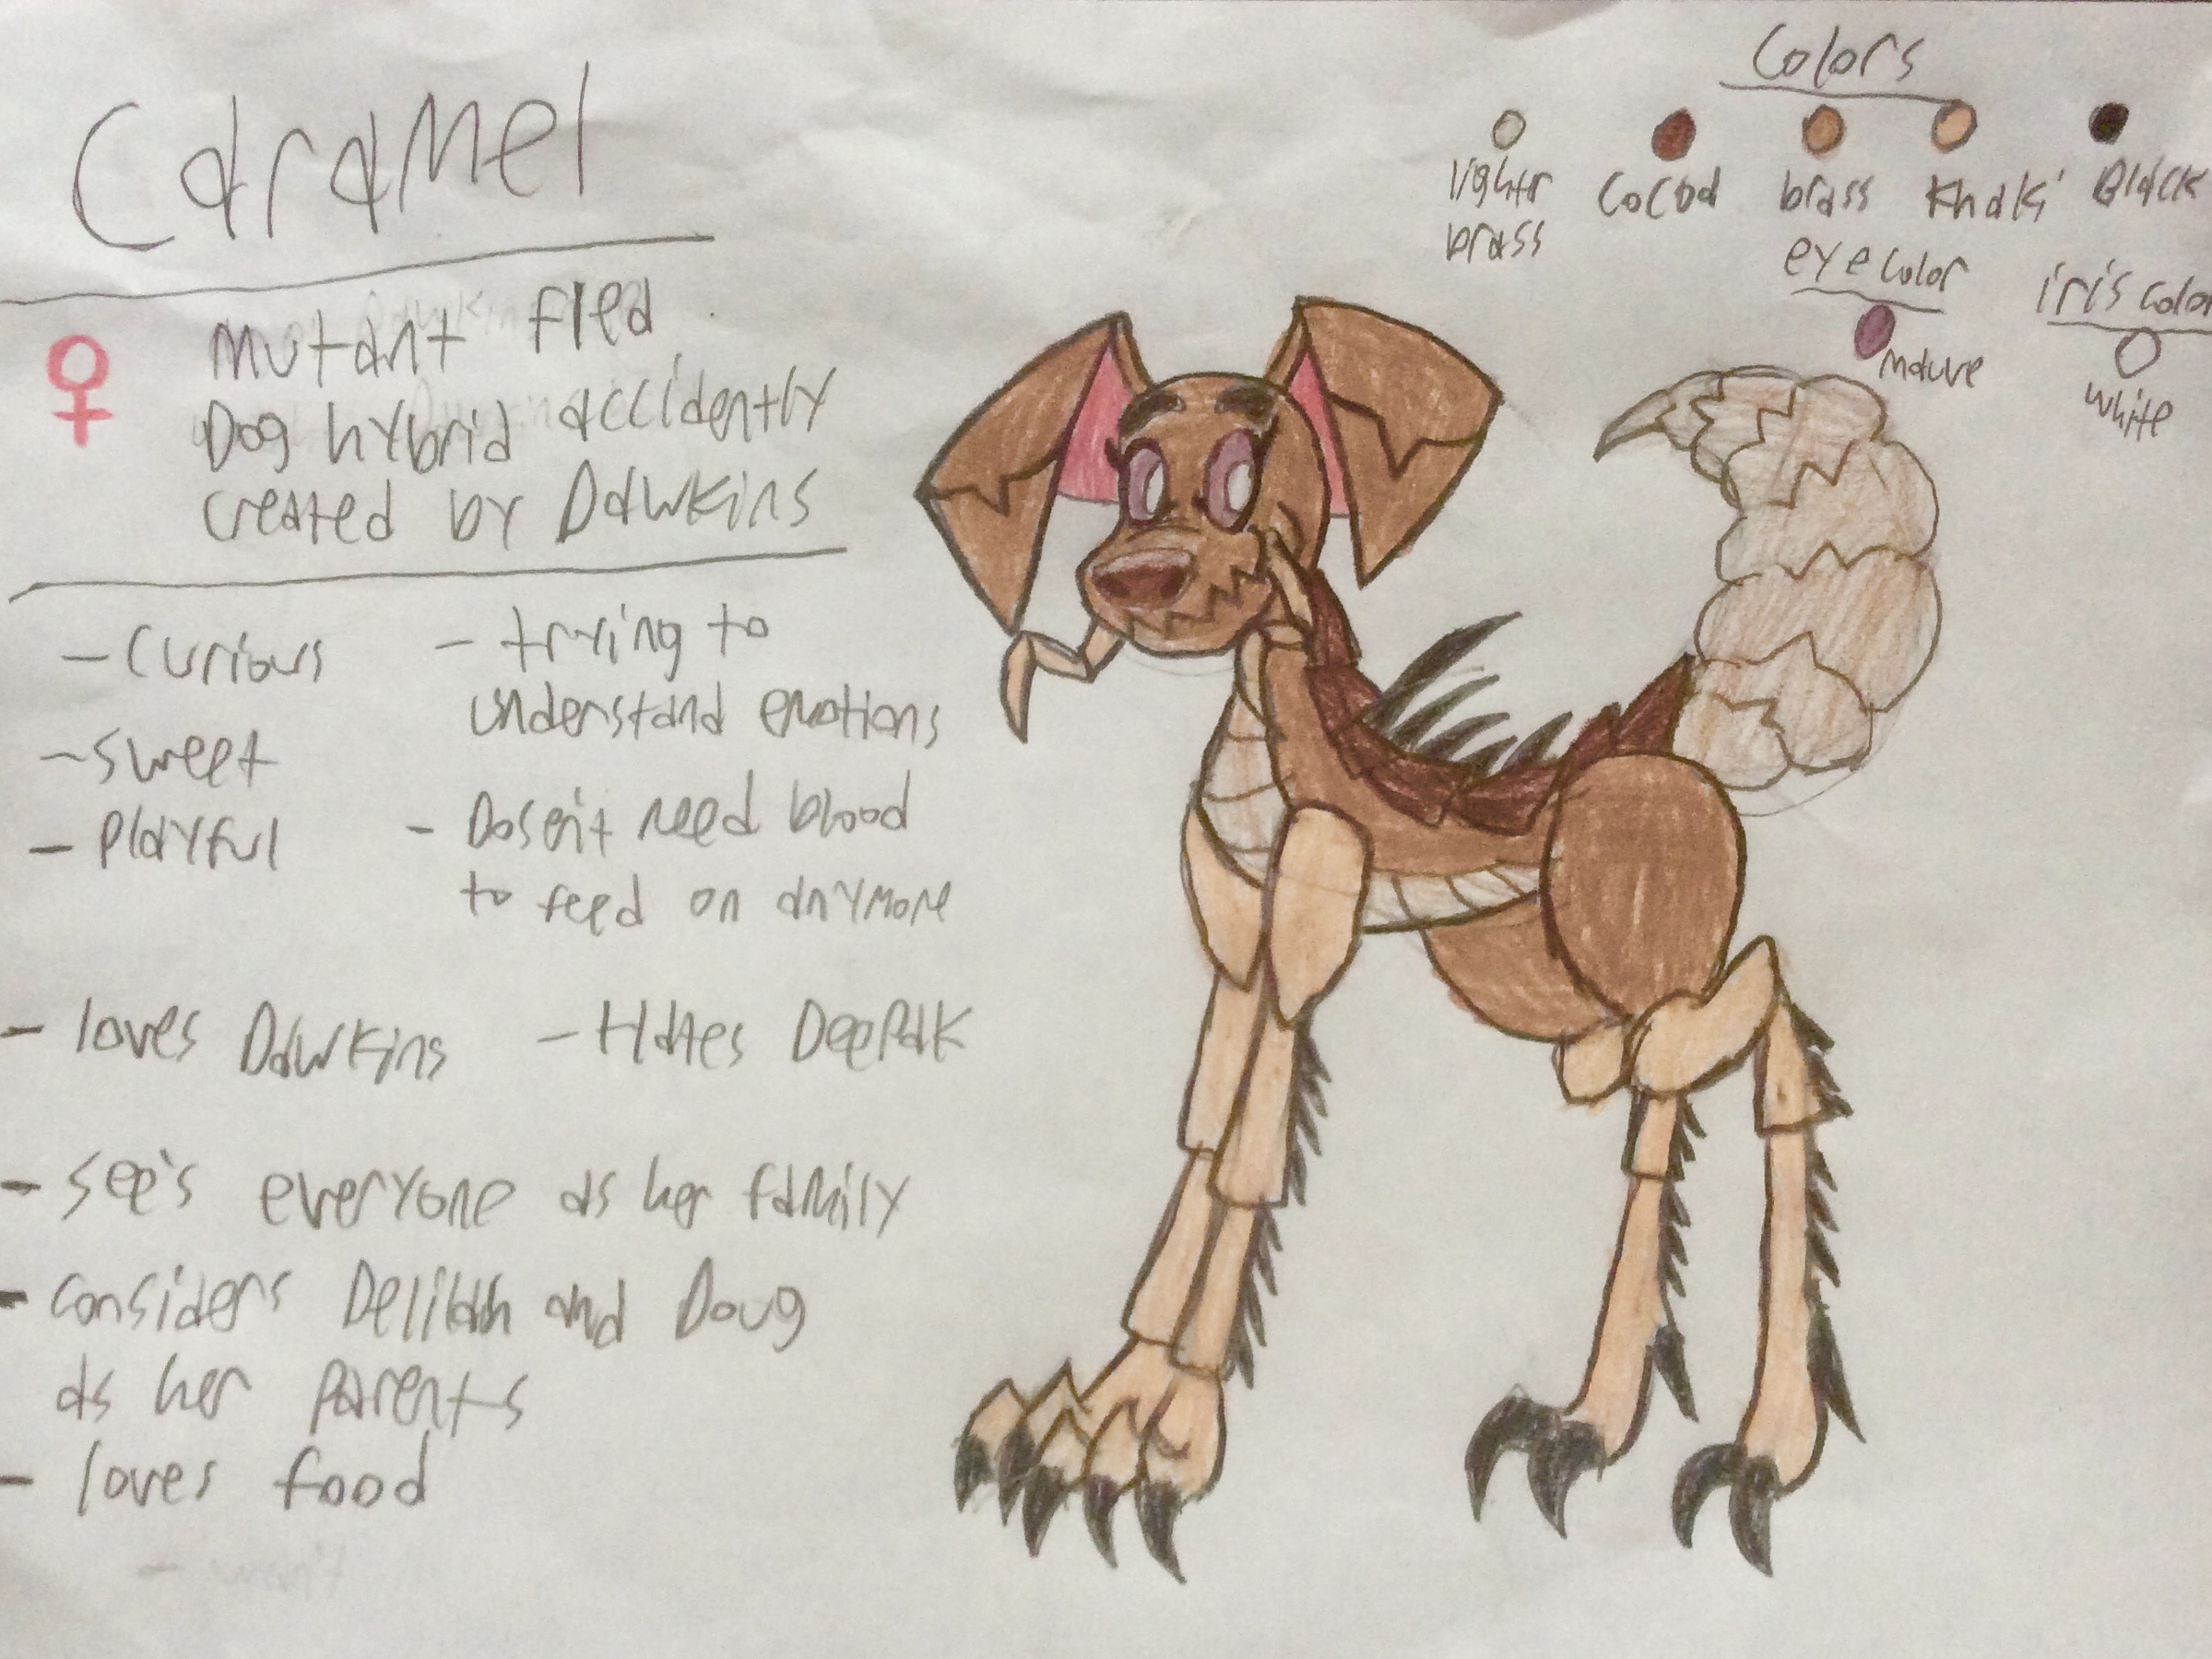 Caramel
♀
Mutant flea
Dog hybrid accidently
created by Dawkins
- Curious
- Sweet
- Playful
- trying to
understand emotions
- Dosen't need blood
to feed on anymore
- loves Dawkins
- Hates Deepak
- See's everyone as her family
- Considers Delilah and Doug
as her parents
- loves food
Colors
lighter
brass
Cocoa
brass
Khaki
Black
eye color
mauve
iris color
white